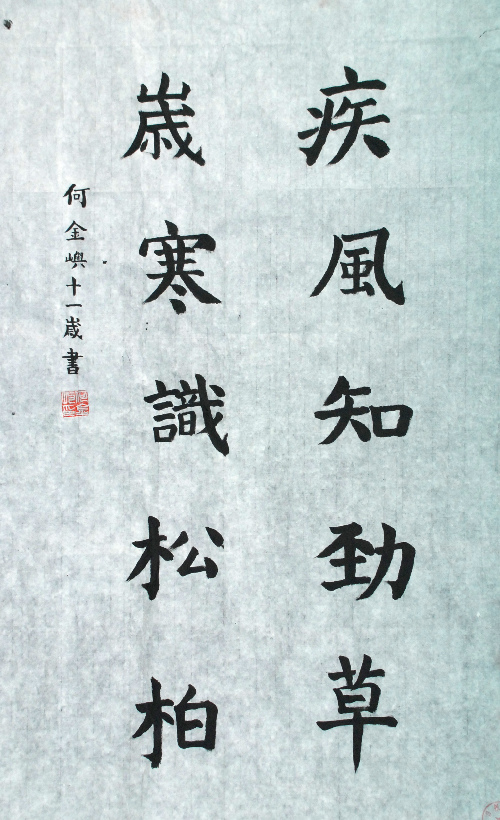 疾風知勁草
歲寒識松柏
何金嶼十一歲書